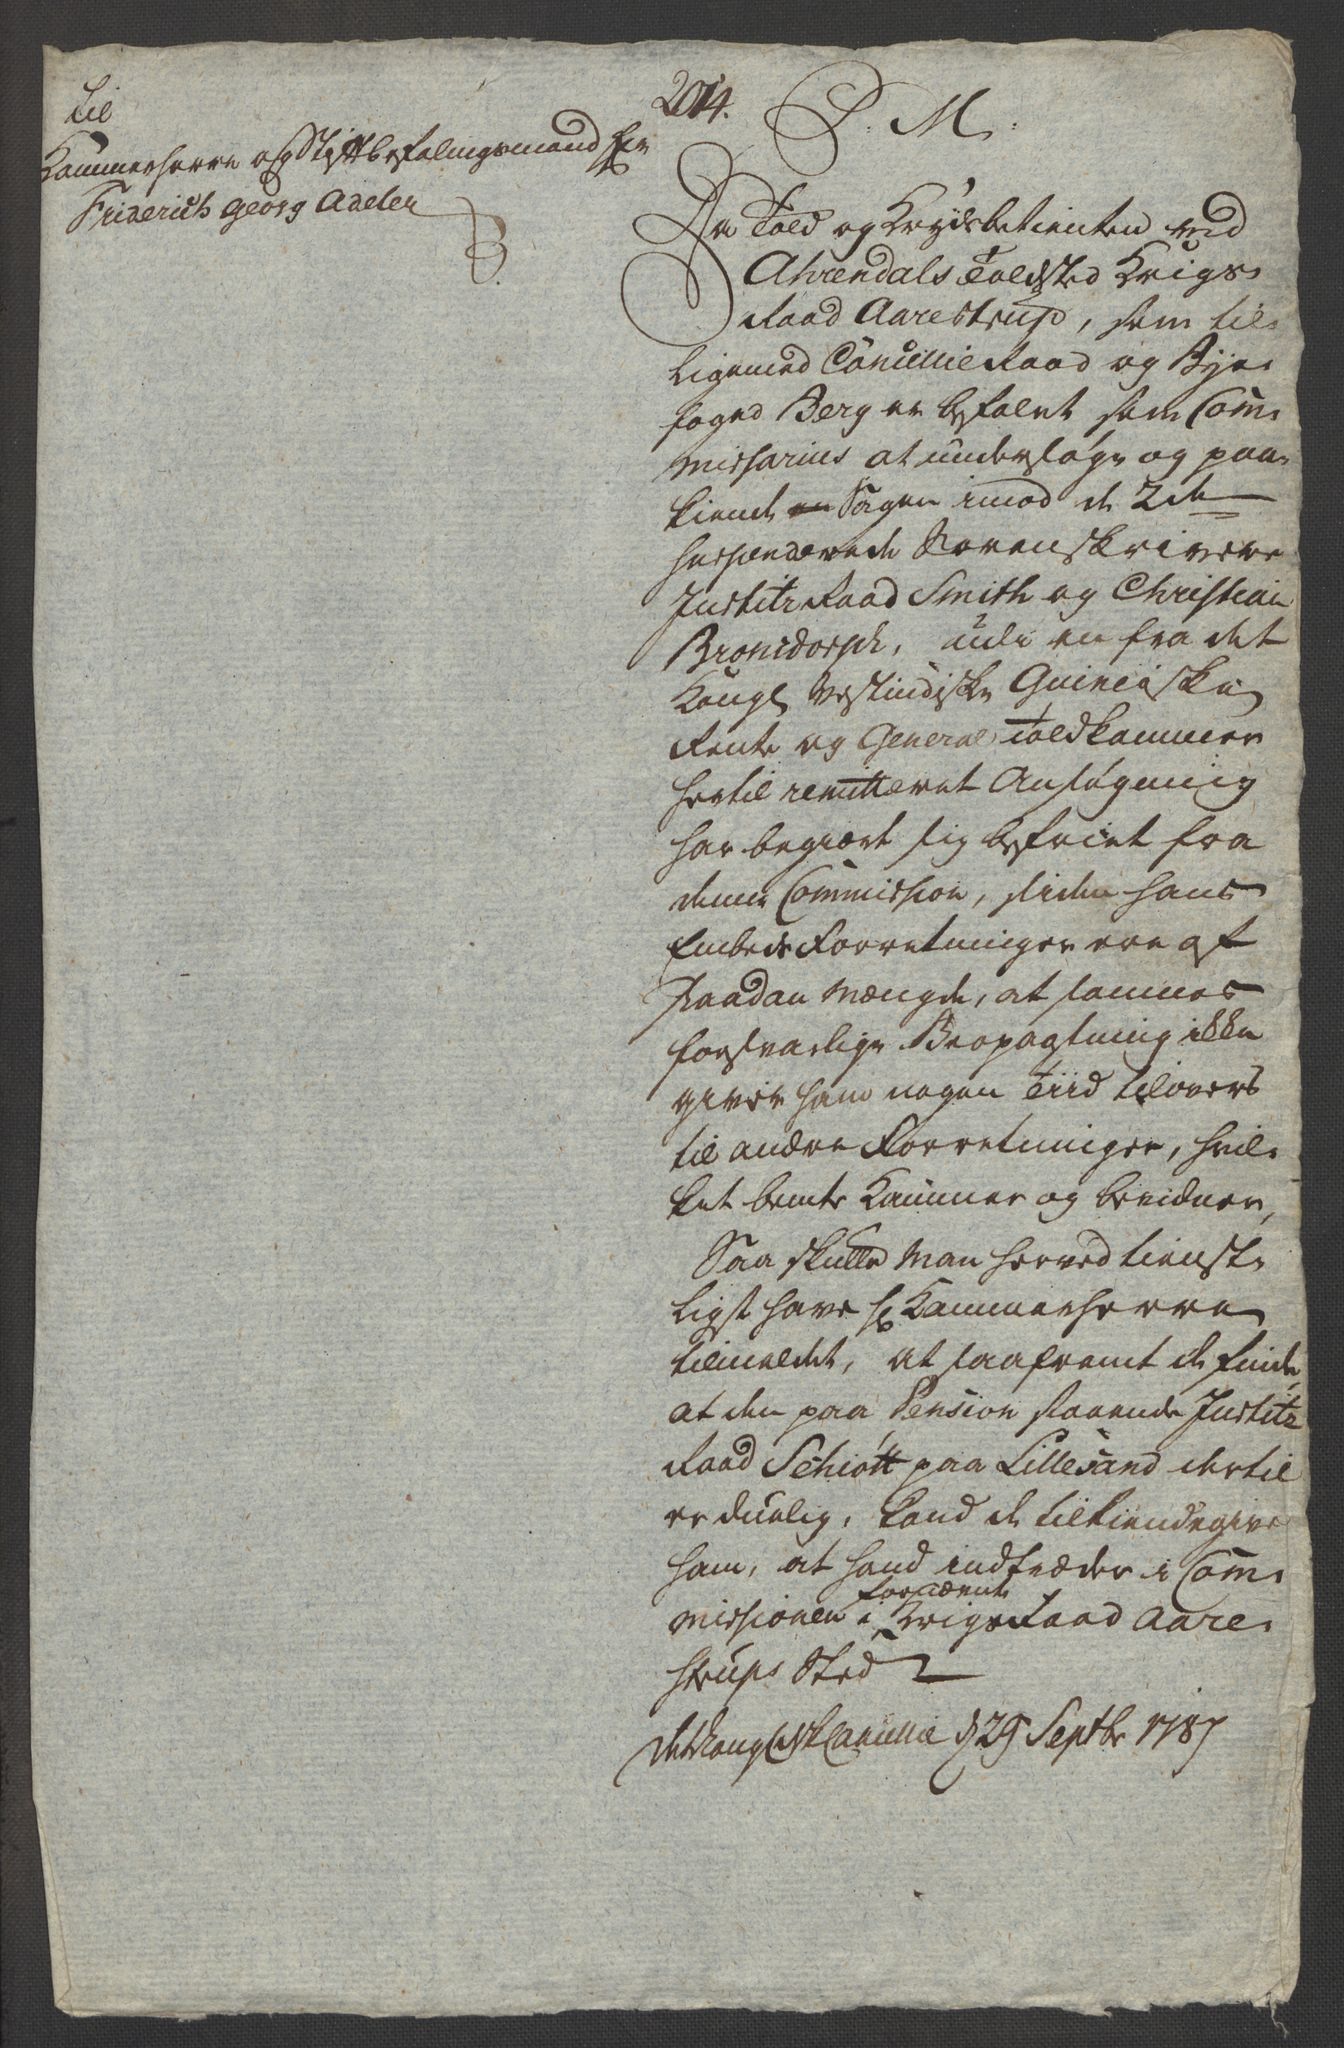 Til
Kammerherre og Stiftbefalingsmand Hr
Friderich Georg Adeler
2014.
P. M.
Da Told og Krydsbetienten ved
Ahrendals Toldsted Krigs-
Raad Aarestrup, som til-
ligemed Cancellie Raad og Bye-
foged Berg er befalet som Com-
missarius at undersøge og paa-
kiende Sagen imod de 2de
suspenderede Sorenskrivere
Justitz Raad Smith og Christian
Bronsdorph, udi en fra det
Kongl Vestindiske Guineiske
Rente og General Toldkammer
hertil remitteret Ansøgning
har begiært sig befriet fra
denne Commission, siden hans
Embeds Forretninger ere af
saadan Mængde, at sammes
forsvarlige Beopagtning ikke
giver ham nogen Tiid tilovers
til andre Forretninger, hvil-
ket bemte Kammer og bevidner,
Saa skulle Man herved tienst-
ligst have Hr Kammerherre
tilmeldet, at saafremt de finde,
at den paa Pension staaende Justitz
Raad Schiøtt paa Lillesand dertil
er duelig, kand de tilkiendegive
ham, at hand indtræder i Com-
missionen i forn̄ævnte Krigs Raad Aare-
strups Sted
Det Kongl Dske Cancellie d 29 Septbr 1787